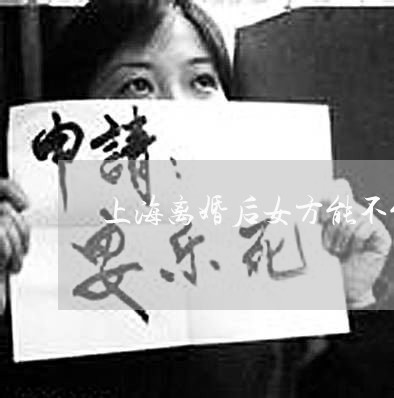 申請：
上海离婚后女方能不
安乐死